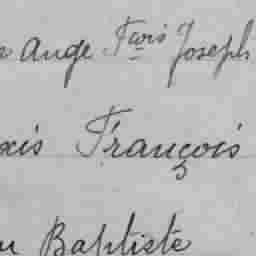 Ange Fçois Joseph
xis François
Baptiste